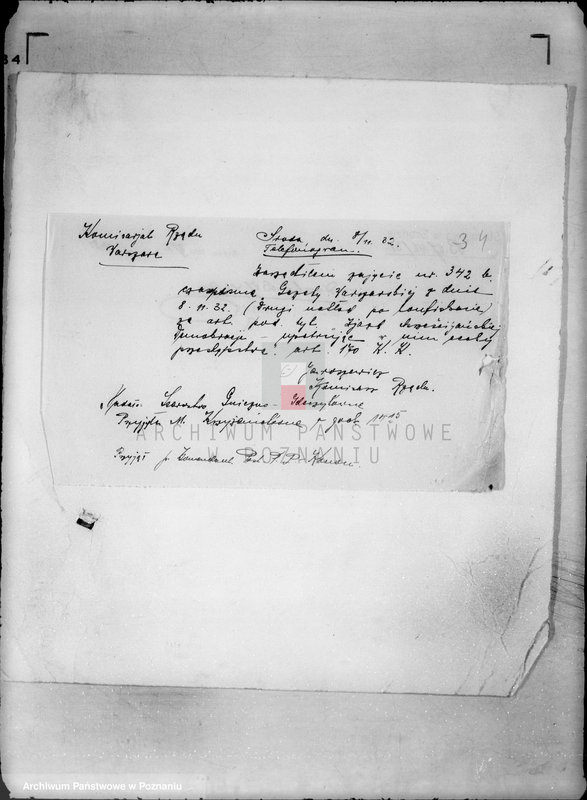 34
Komisarjat Rządu
Warszawa
Środa, dn. 8/11. 32.
Telefonogram.
34
Zarządziłem zajęcie nr. 342 b.
czasopisma Gazety Warszawskiej z dnia
8. 11. 32. (Drugi nakład po konfiskacie)
za art. pod tyt. Zjazd
Demokracji - upatrując w nim cechy
przestępstwa art. 170 K. K.
Jaroszewicz
Komisarz Rządu.
Nadało Starostwo Gniezno -
Przyjęła M. o godz. 11.15
Przyjął p. Komendant Post. P. P.
ARCHIWUM PAŃSTWOWE
W POZNANIU
Archiwum Państwowe w Poznaniu